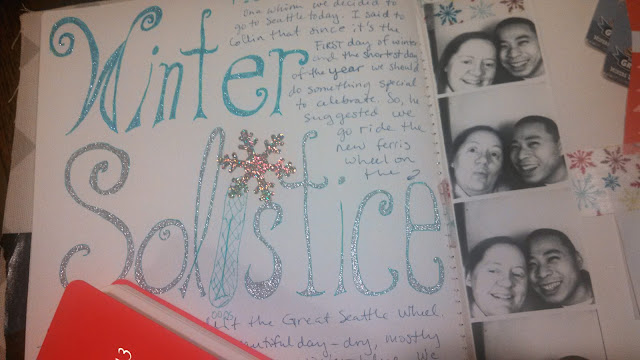 One whim we decided to
go to Seattle today. I said to
Collin that since it's the
FIRST day of winter
and the shortest day
of the year we should
do something special
to celebrate. So, he
suggested we
go ride the
new ferris
wheel on
the
Winter
Solstice
oops
the Great Seattle Wheel.
day - dry, mostly
We
3